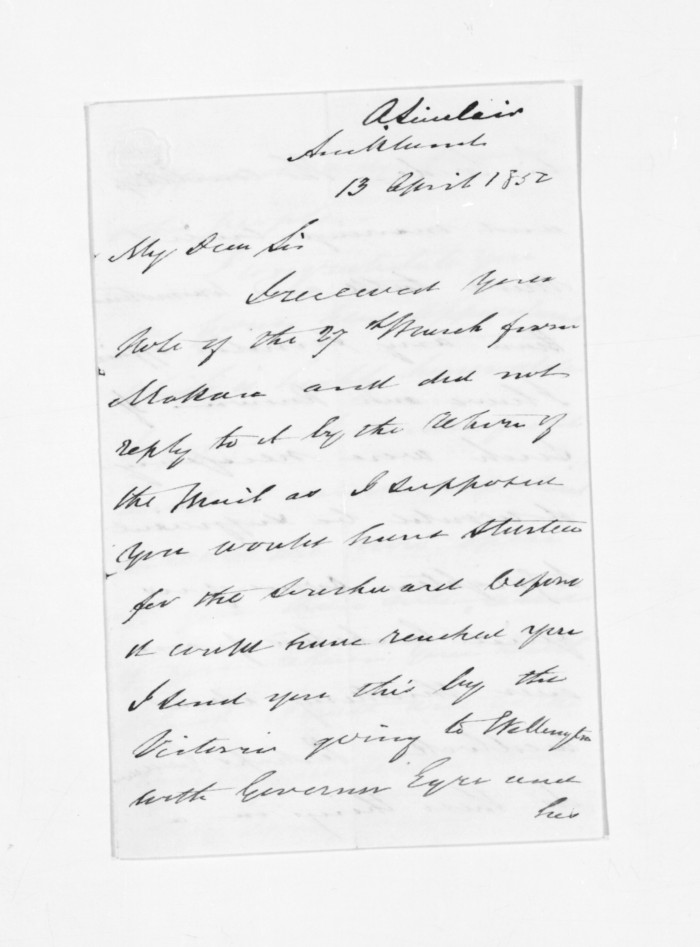 ASinclair
Auckland
13 April 1852
My Dear Sir
I received your
Note of the 27th March from
Mokau and did not
reply to it by the return of
the Mail as I supposed
you would have started
for the Southward before
it could have reached you
I send you this by the
Victoria going to Wellington
with Governor Eyre and
his